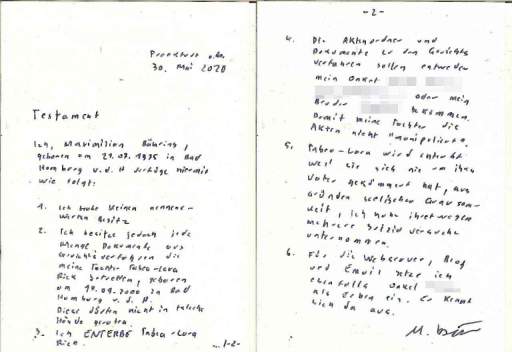 Frankfurt a.M.
30. Mai 2020
Testament
Ich, Maximilian Bähring,
geboren am 21.09.1975 in Bad
Homburg v.d.H. verfüge hiermit
wie folgt:
1. Ich habe keinen nennens-
werten Besitz
2. Ich besitze jedoch jede
Menge Dokumente aus
Gerichtsverfahren die
meine Tochter Tabea-Lara
Riek betreffen, geboren
am 14.09.2000 in Bad
Homburg v.d.H.
Diese dürfen nicht in falsche
Hände geraten.
3. Ich ENTERBE Tabea-Lara
Riek.
../-2-
-2-
4. Die Aktenordner und
Dokumente zu den Gerichts
verfahren sollen entweder
mein Onkel
oder mein
Bruder bekommen.
Damit meine Tochter die
Akten nicht "manipuliert".
5. Tabea-Lara wird enterbt
weil sie sich nie um ihren
Vater gekümmert hat, aus
Gründen seelischer Grausam-
keit, ich habe ihretwegen
mehrere Suizidversuche
unternommen.
6. Für die Webserver, Blog
und Email setze ich
ebenfalls Onkel
als Erben ein. Er kennt
sich da aus.